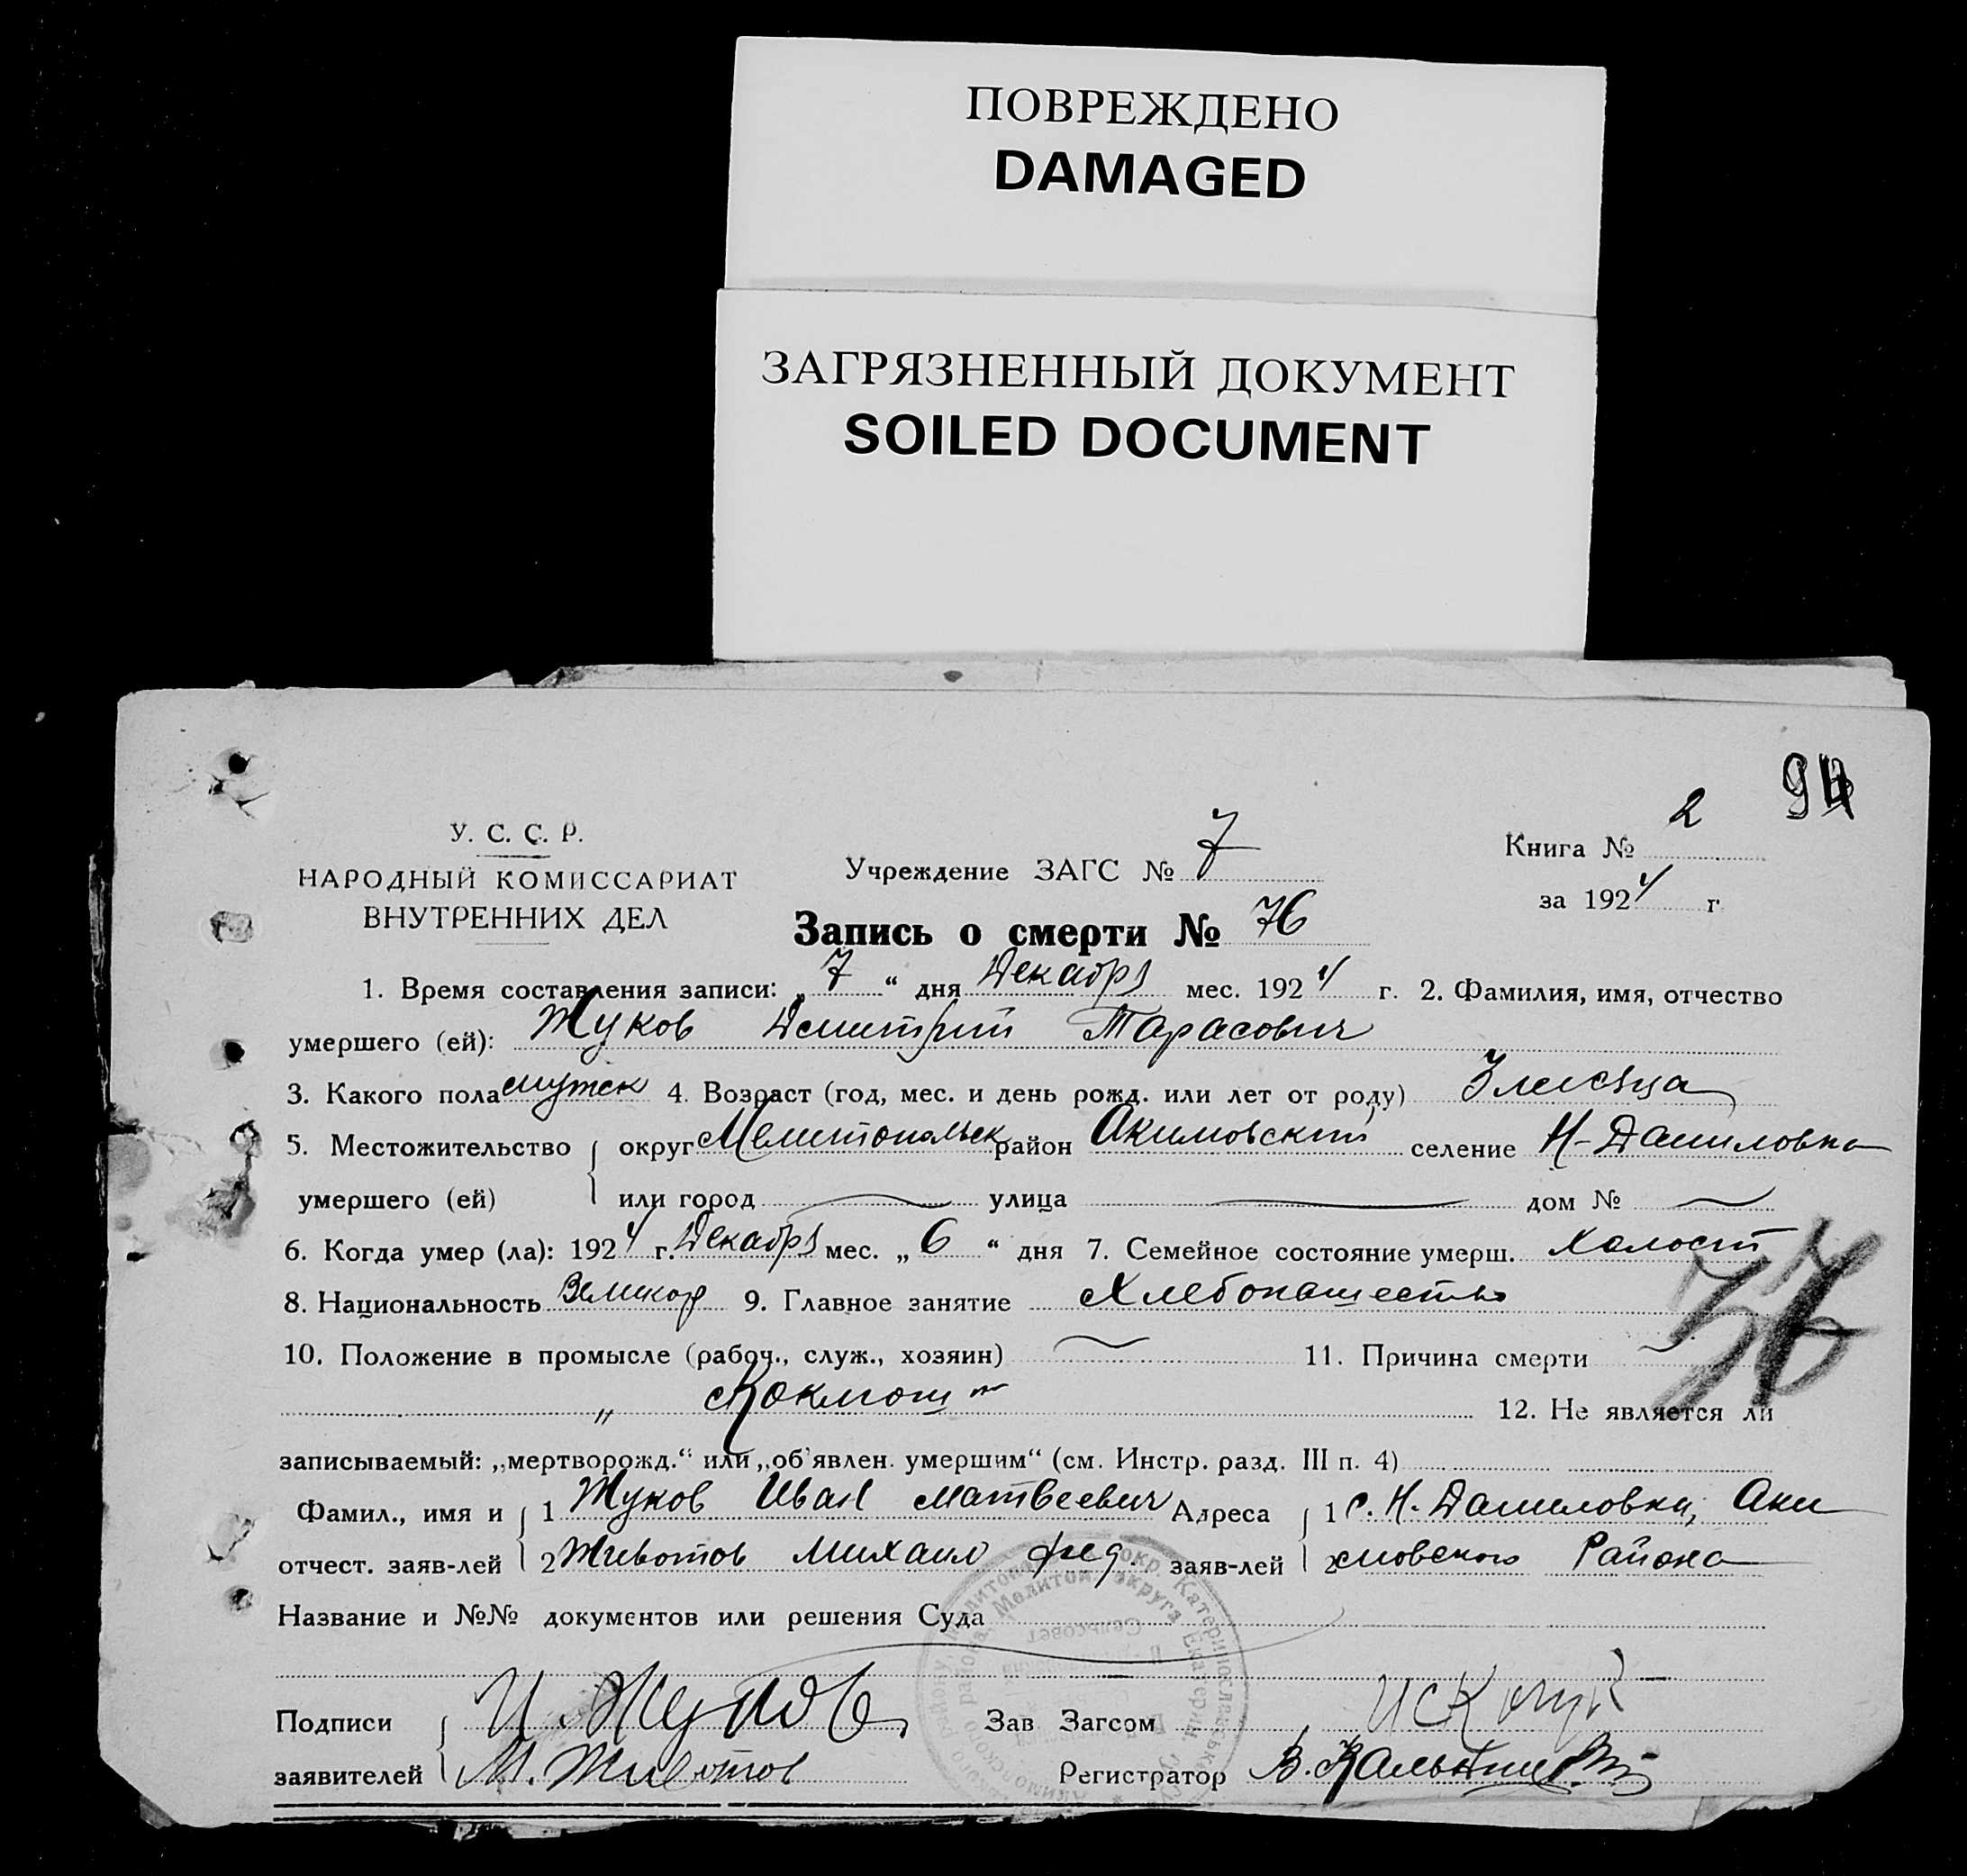 ПОВРЕЖДЕНО
DAMAGED
ЗАГРЯЗНЕННЫЙ ДОКУМЕНТ
SOILED DOCUMENT
94
У. С. С. Р.
НАРОДНЫЙ КОМИССАРИАТ
ВНУТРЕННИХ ДЕЛ
Учреждение ЗАГС № 7
Книга № 2
за 1924 г
Запись о смерти № 76
1. Время составления записи: „7“ дня Декабря мес. 1924 г. 2. Фамилия, имя, отчество
умершего (ей): Жуков Дмитрий Тарасович
3. Какого пола мужск 4. Возраст (год, мес. и день рожд. или лет от роду) 3 месяца
5. Местожительство округ Мелитопольск район Акимовский селение Н-Даниловка
умершего (ей) или город улица дом №
6. Когда умер (ла): 1924 г. Декабря мес. „6“ дня 7. Семейное состояние умерш. Холост
8. Национальность Великор 9. Главное занятие Хлебопашество
76
10. Положение в промысле (рабоч., служ., хозяин) 11. Причина смерти
„ Коклюш
12. Не является ли
записываемый: „мертворожд.“ или „об'явлен. умершим“ (см. Инстр. разд. III п. 4)
Фамил., имя и 1 Жуков Иван Матвеевич Адреса 1 с. Н-Даниловки, Аки
отчест. заяв-лей 2 Животов Михаил Фед. заяв-лей 2 мовского Района
Название и №№ документов или решения Суда
Подписи И. Жуков Зав Загсом
заявителей М. Животов Регистратор В.